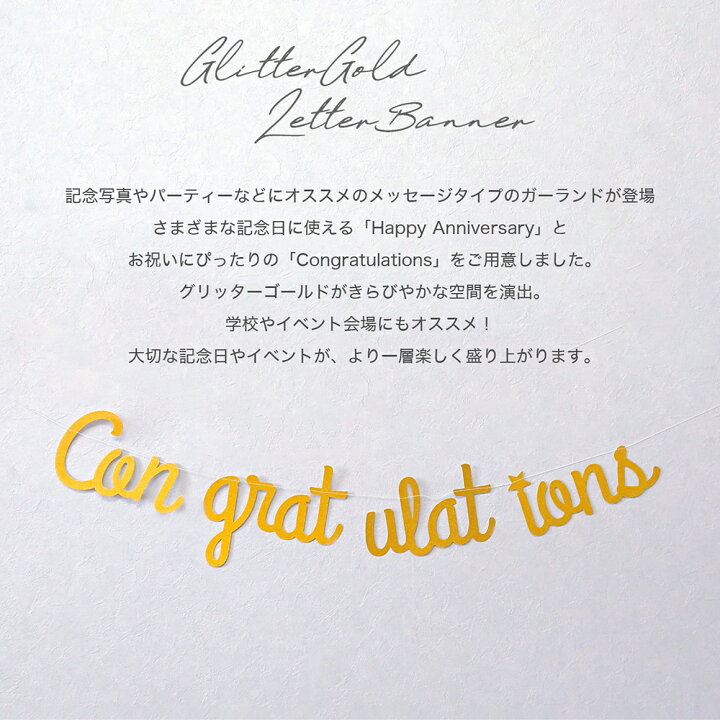 GlitterGold
LetterBanner
記念写真やパーティーなどにオススメのメッセージタイプのガーランドが登場
さまざまな記念日に使える「Happy Anniversary」と
お祝いにぴったりの「Congratulations」をご用意しました。
グリッターゴールドがきらびやかな空間を演出。
学校やイベント会場にもオススメ！
大切な記念日やイベントが、より一層楽しく盛り上がります。
Congratulations